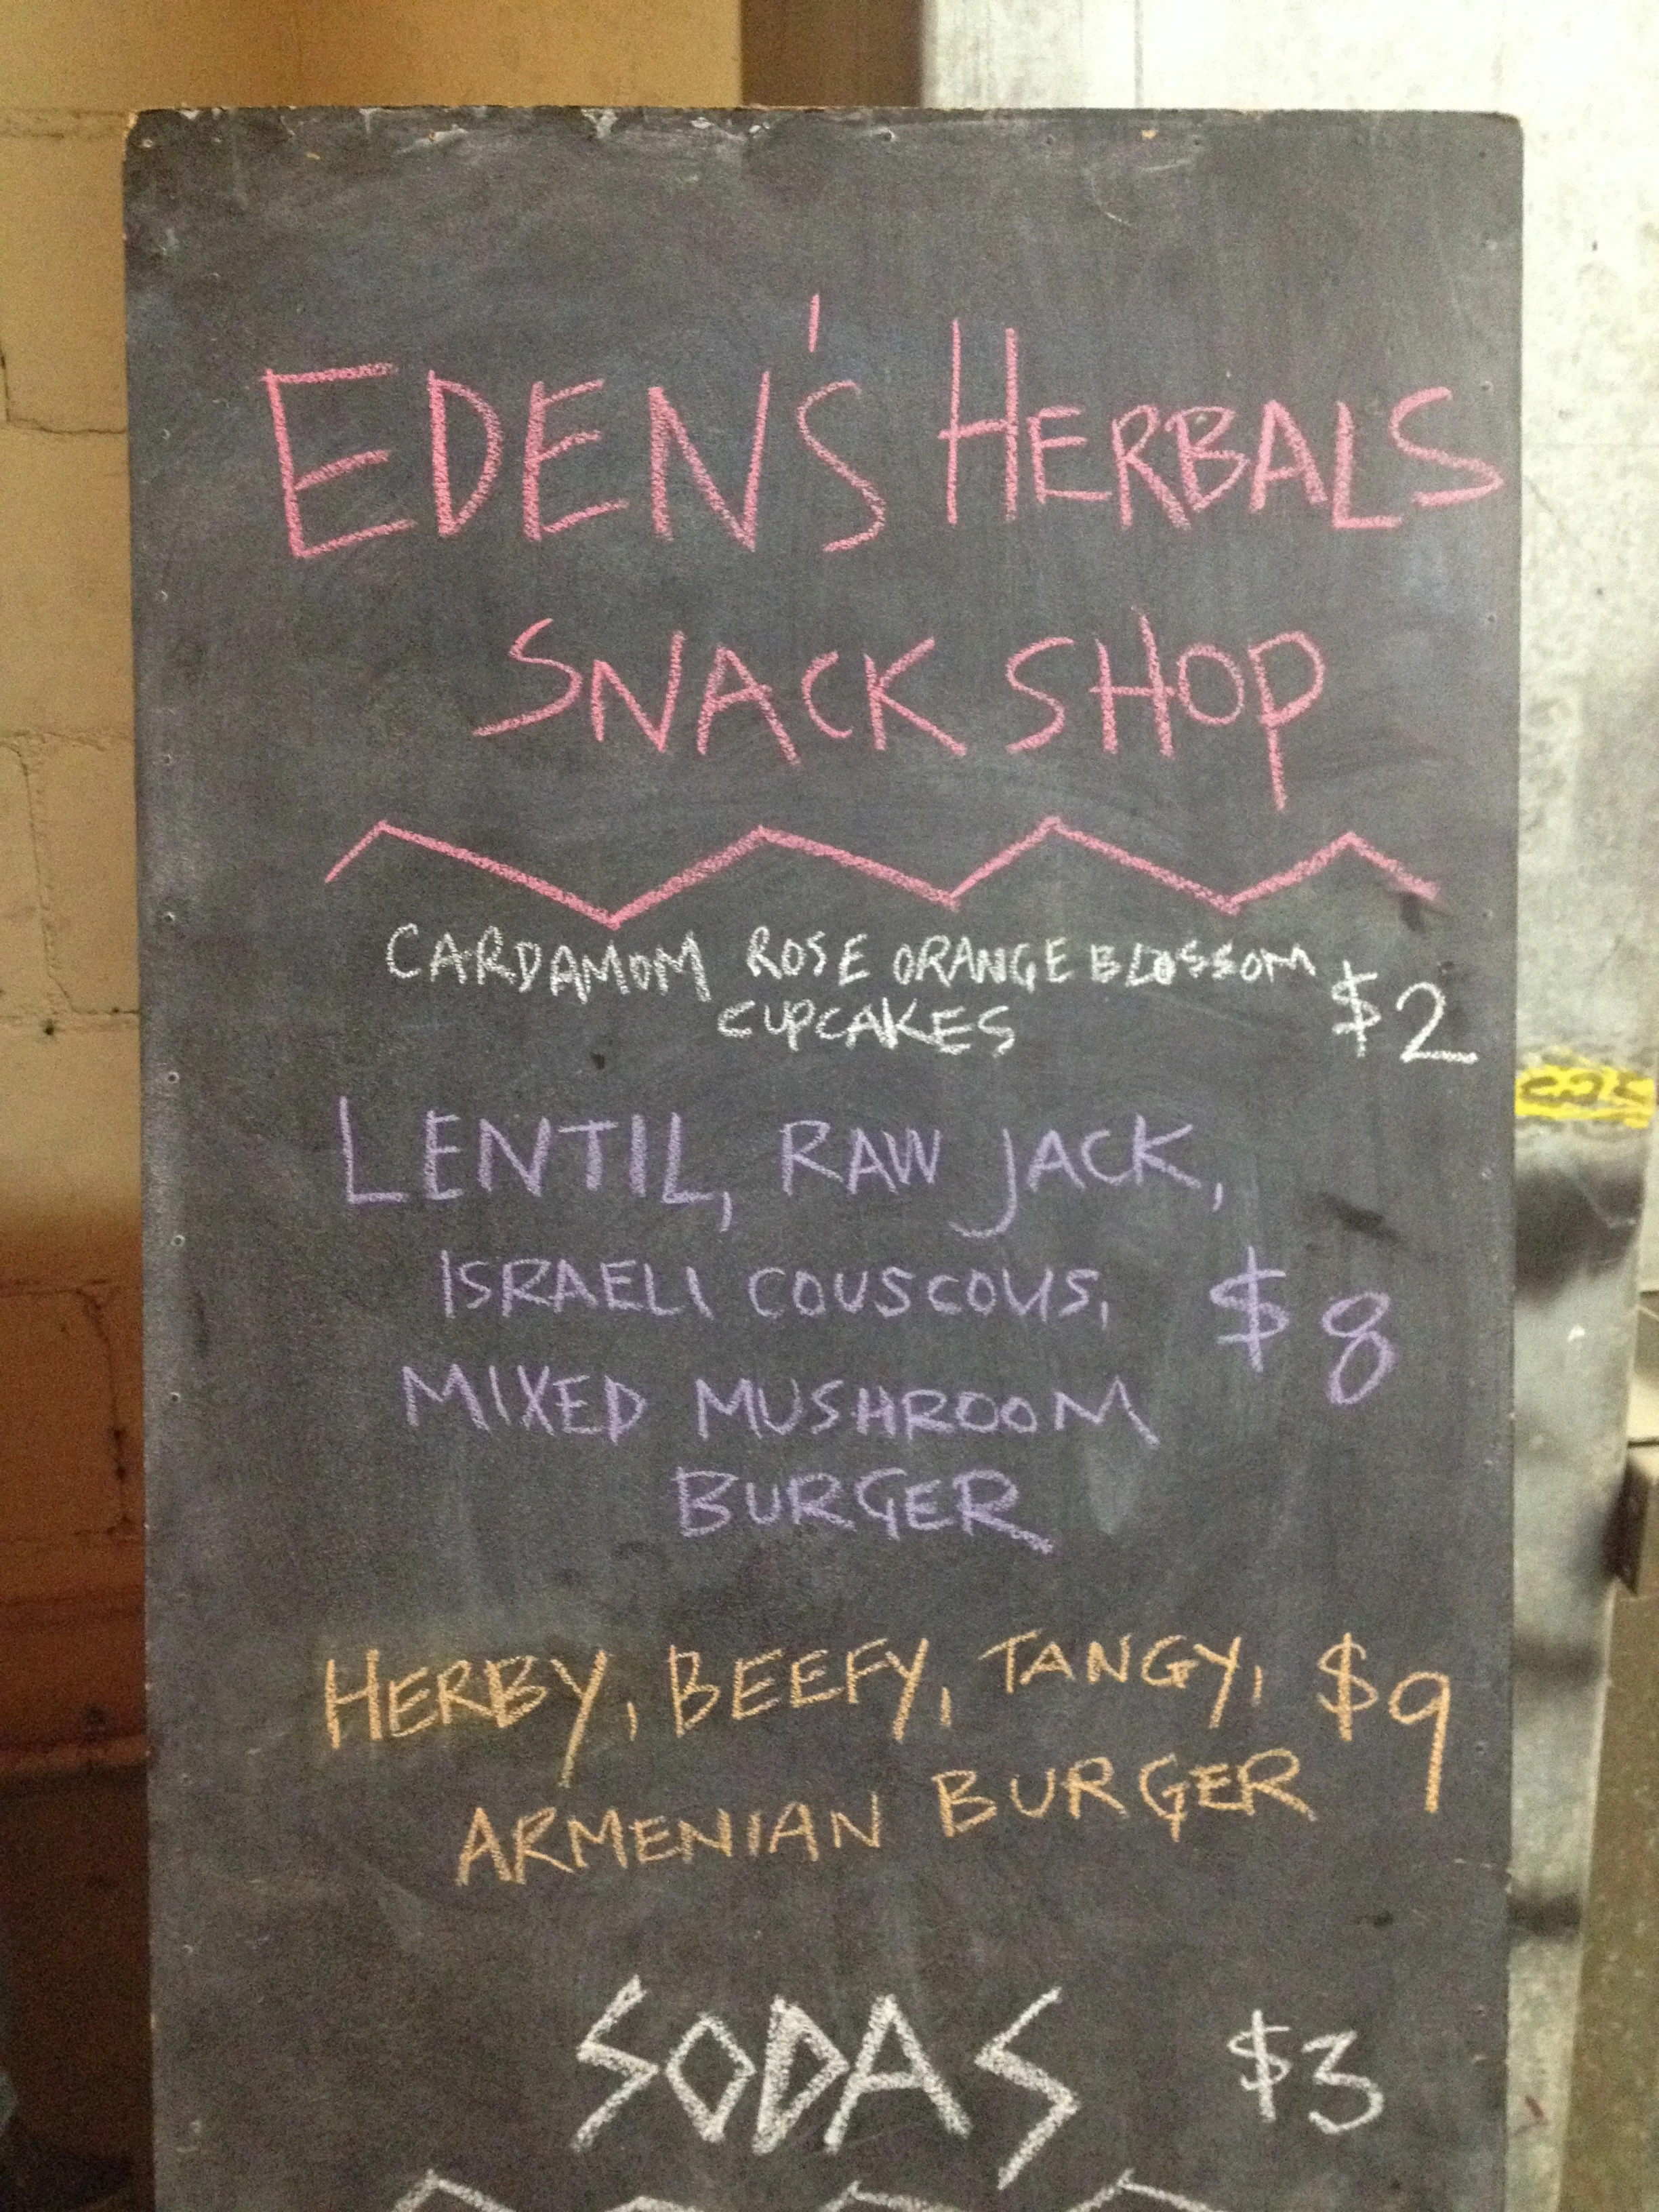 EDEN'S HERBALS
SNACK SHOP
CARDAMOM ROSE ORANGE BLOSSOM
CUPCAKES $2
LENTIL, RAW JACK,
ISRAELI COUSCOUS, $8
MIXED MUSHROOM
BURGER
HERBY, BEEFY, TANGY, $9
ARMENIAN BURGER
SODAS $3